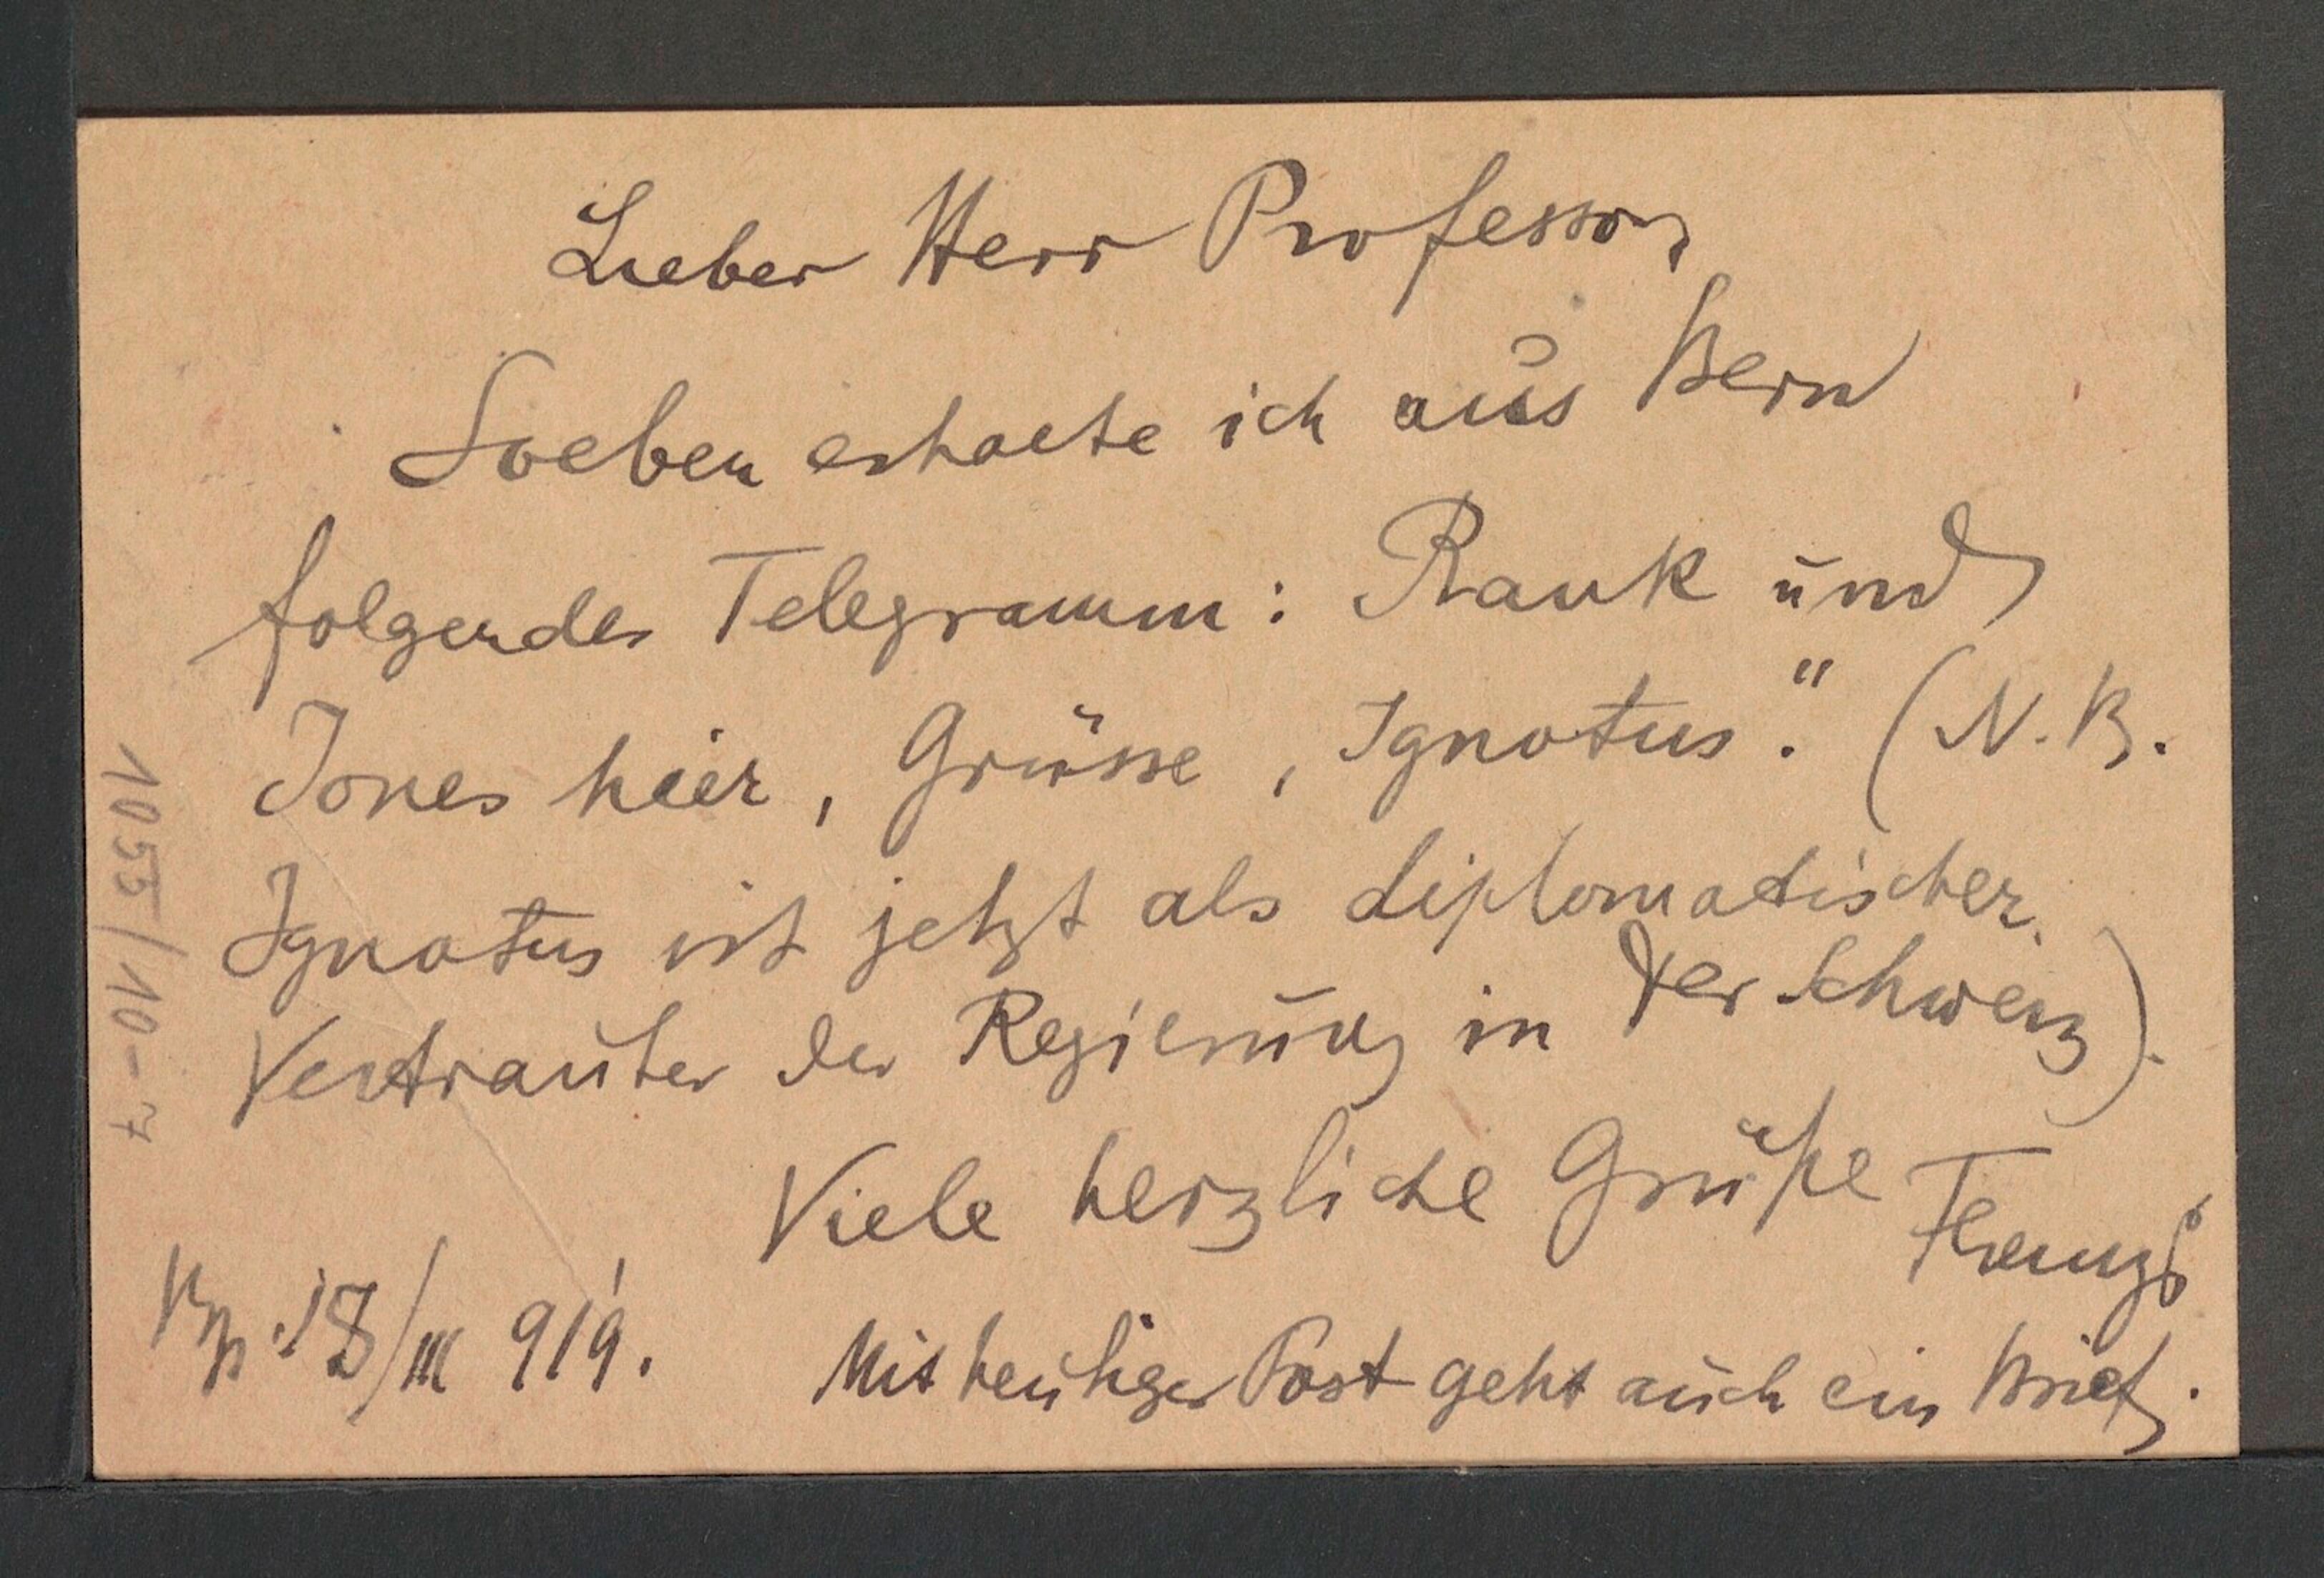 Lieber Herr Professor
Soeben erhalte ich aus Bern
folgendes Telegramm: Rank und
Jones hier, Grüsse, Ignotus." (N.B.
Ignotus ist jetzt als diplomatischer
Vertrauter der Regierung in der Schweiz).
Viele herzliche Grüße
Ferenczi
Bp. 18/III 919.
Mit heutiger Post geht auch ein Brief.
1055/10-7